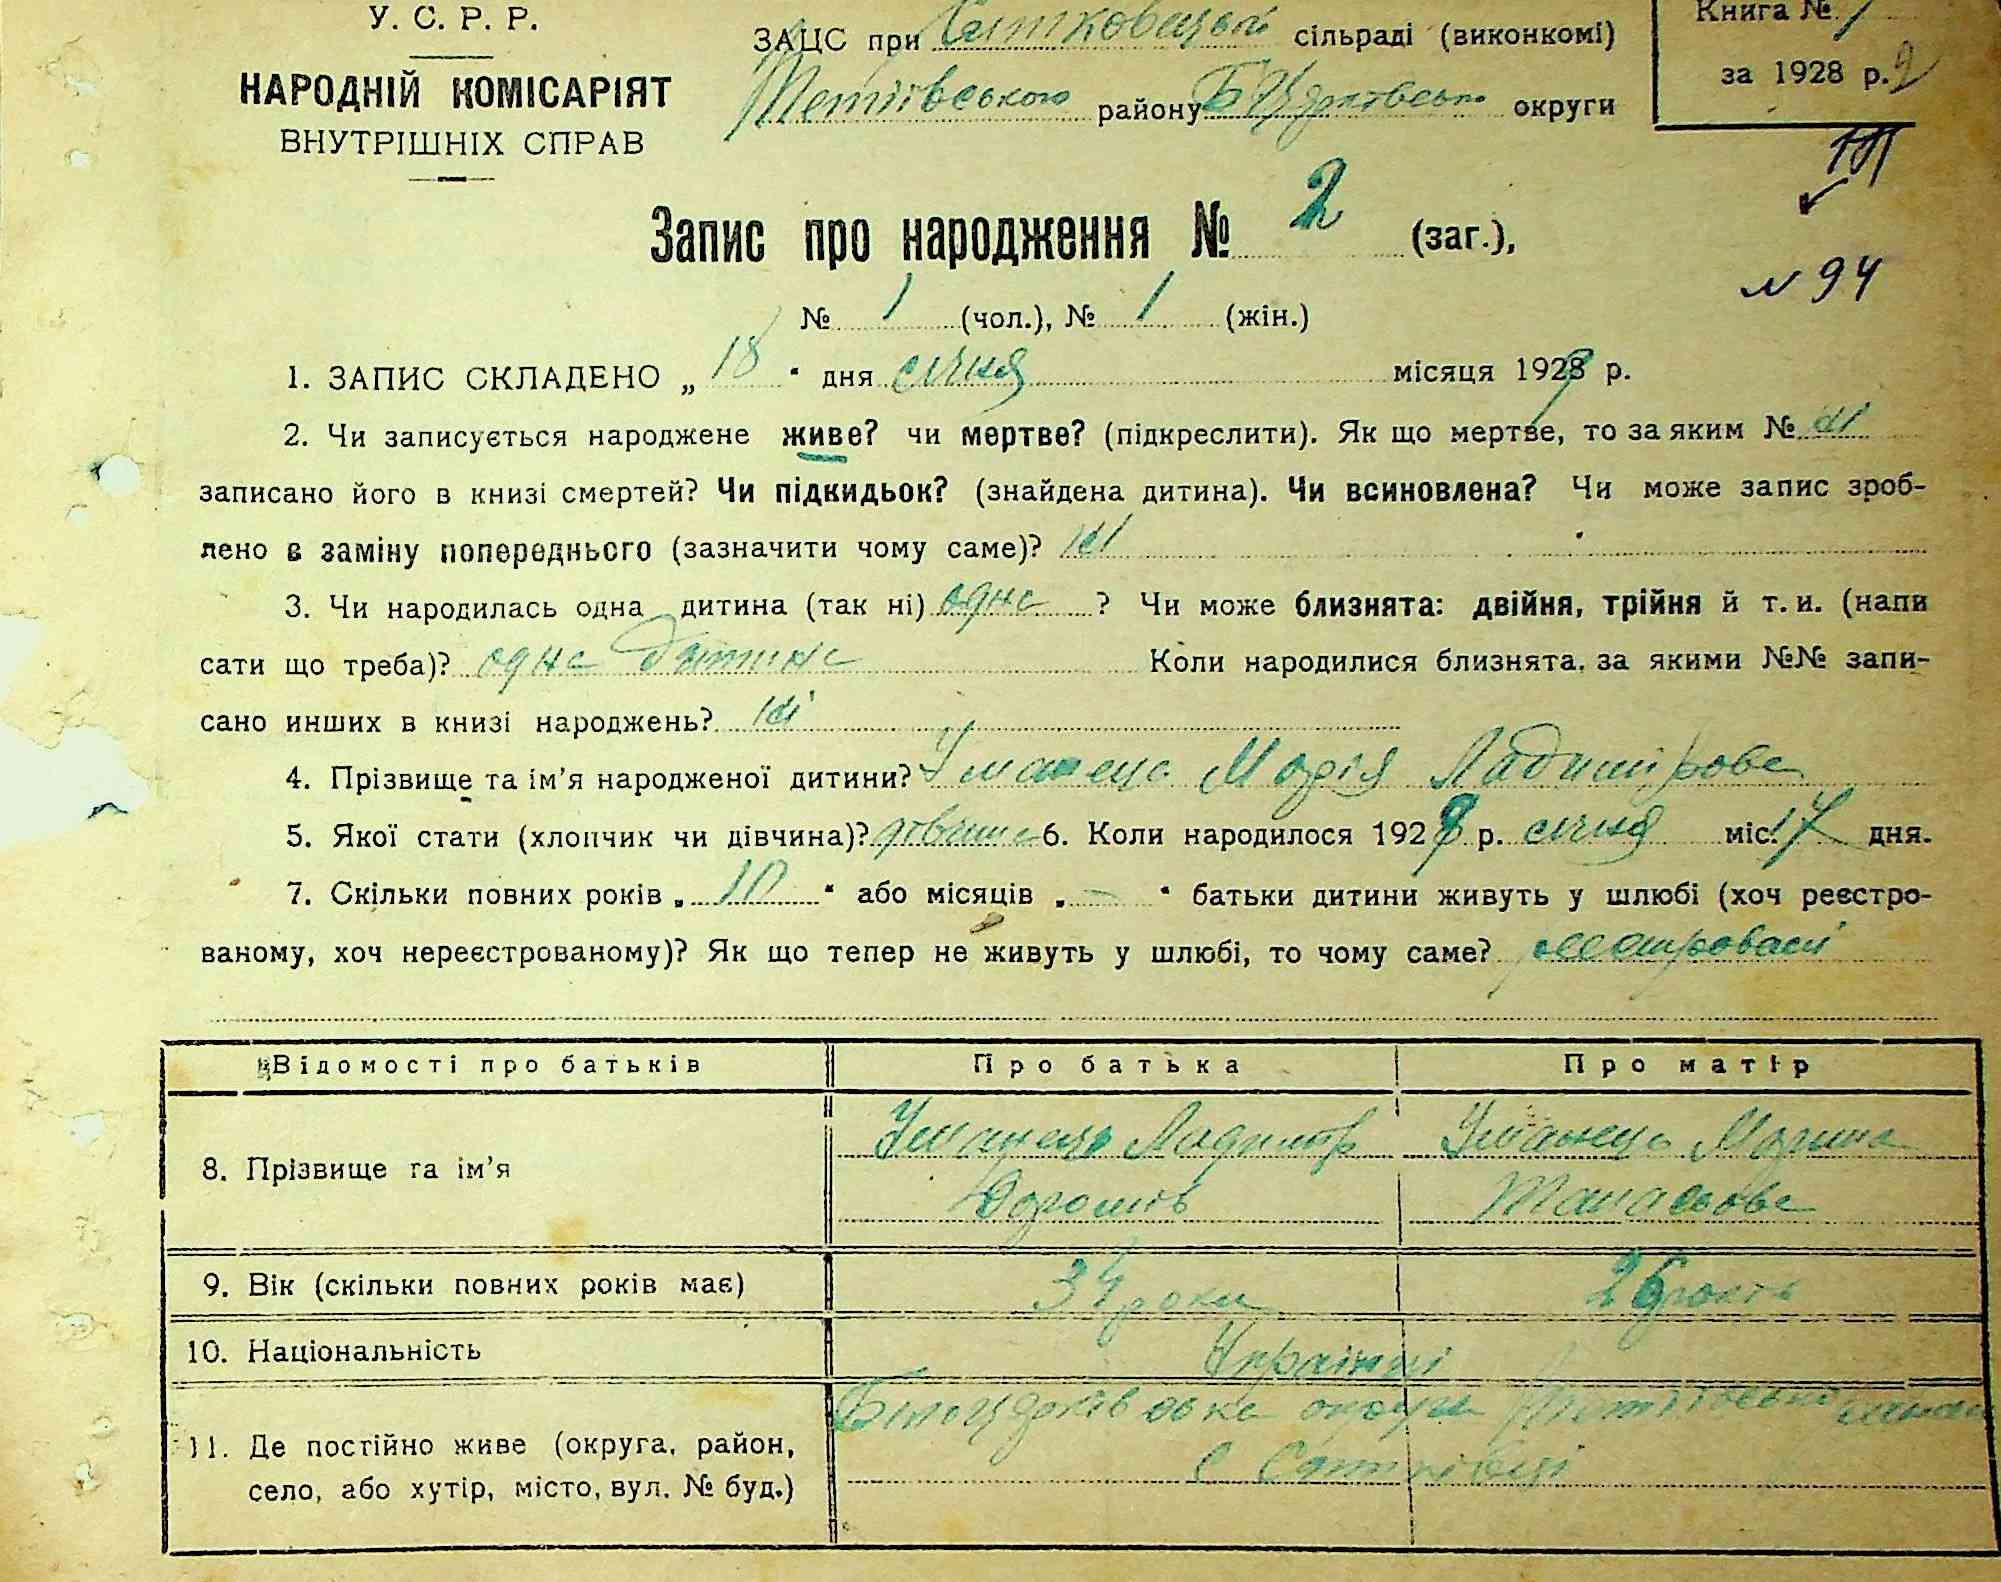 У. С. Р. Р.
НАРОДНІЙ КОМІСАРІЯТ
ВНУТРІШНІХ СПРАВ
ЗАЦС при сільраді (виконкомі)
Тетіївського району Б Церковсько округи
Книга № 1
за 1928 р. 9
Запис про народження № 2 (заг.),
№ 94
№ 1 (чол.), № 1 (жін.)
1. ЗАПИС СКЛАДЕНО „ 18 “ дня січня місяця 1929 р.
2. Чи записується народжене живе? чи мертве? (підкреслити). Як що мертве, то за яким № ні
записано його в книзі смертей? Чи підкидьок? (знайдена дитина). Чи всиновлена? Чи може запис зроб-
лено в заміну попереднього (зазначити чому саме)? ні
3. Чи народилась одна дитина (так ні) одна ? Чи може близнята: двійня, трійня й т. и. (напи
сати що треба)? одна дитина Коли народилися близнята, за якими №№ запи-
сано инших в книзі народжень? ні
4. Прізвище та ім’я народженої дитини? Уманець Марія Ладимірова
5. Якої стати (хлопчик чи дівчина)? дівчина 6. Коли народилося 1929 р. січня міс. 17 дня.
7. Скільки повних років „ 10 “ або місяців „ - “ батьки дитини живуть у шлюбі (хоч реєстро-
ваному, хоч нереєстрованому)? Як що тепер не живуть у шлюбі, то чому саме?
Відомості про батьків Про батька Про матір
8. Прізвище та ім’я
Уманець Ладимір
Уманець Марина
Танасова
9. Вік (скільки повних років має) 34 роки 26 років
10. Національність Українці
11. Де постійно живе (округа, район,
село, або хутір, місто, вул. № буд.)
Білоцерківська округа Тетіївський район
с